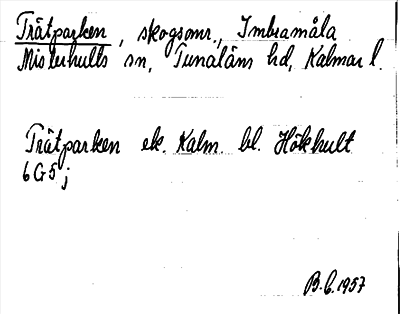 Trätparken, skogsomr., Imbramåla
Misterhults sn, Tunaläns hd, Kalmar l.
Trätparken ek. Kalm. bl. Hökhult
6G5j
B.L. 1957